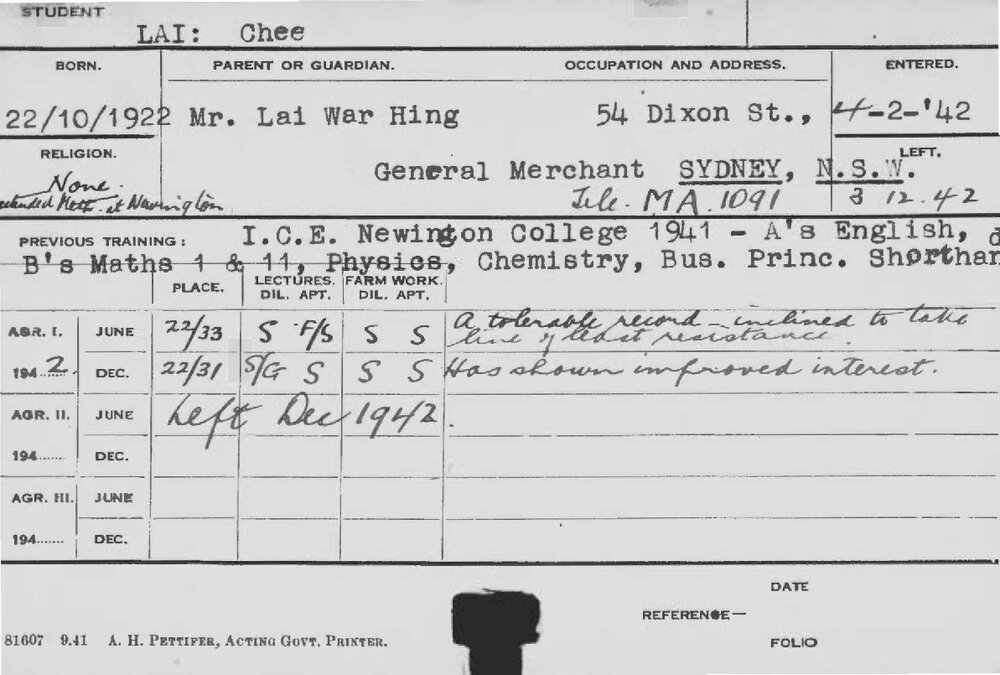 STUDENT
LAI: Chee
BORN. PARENT OR GUARDIAN. OCCUPATION AND ADDRESS. ENTERED.
22/10/1922 Mr. Lai War Hing 54 Dixon St., 4-2-'42
RELIGION. LEFT.
None. General Merchant SYDNEY, N.S.W.
Meth. at Newington Tele. MA 1091 8 12.42
PREVIOUS TRAINING: I.C.E. Newington College 1941 - A's English,
B's Maths 1 & 11, Physics, Chemistry, Bus. Princ. Shorthan
PLACE. LECTURES. DIL. APT. FARM WORK. DIL. APT.
AGR. I. JUNE 22/33 S F/S S S A tolerable record - inclined to take
line of least resistance.
194 2. DEC. 22/31 S/G S S S Has shown improved interest.
AGR. II. JUNE Left Dec 1942.
194....... DEC.
AGR. III. JUNE
194....... DEC.
DATE
REFERENCE—
81607 9.41 A. H. PETTIFER, ACTING GOVT. PRINTER. FOLIO